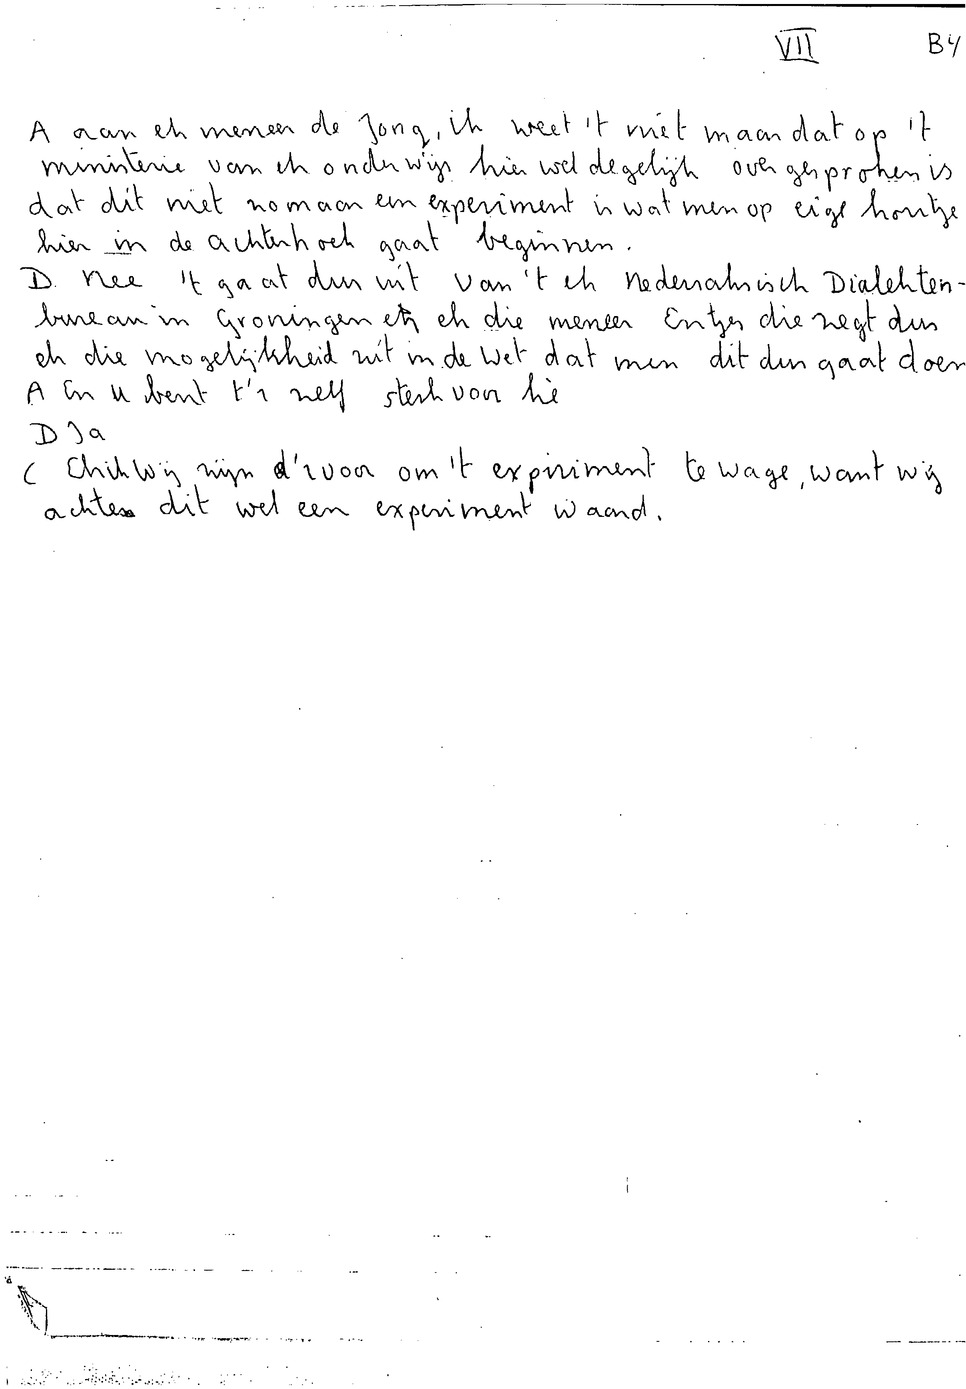 VII B4
A aan eh meneer de Jong, ik weet 't niet maar dat op 't
ministerie van eh onderwijs hier wel degelijk over gesproken is
dat dit niet zomaar een experiment is wat men op eige houtje
hier in de achterhoek gaat beginnen.
D. Nee 't gaat dus uit van 't eh Nedersaksisch Dialekten-
bureau in Groningen eh die meneer Entjes die zegt dus
eh die mogelijkheid zit in de wet dat men dit dus gaat doen
A En u bent t'r zelf sterk voor hè
D Ja
C Eh ik wij zijn d'r voor om 't experiment te wage, want wij
achten dit wel een experiment waard.